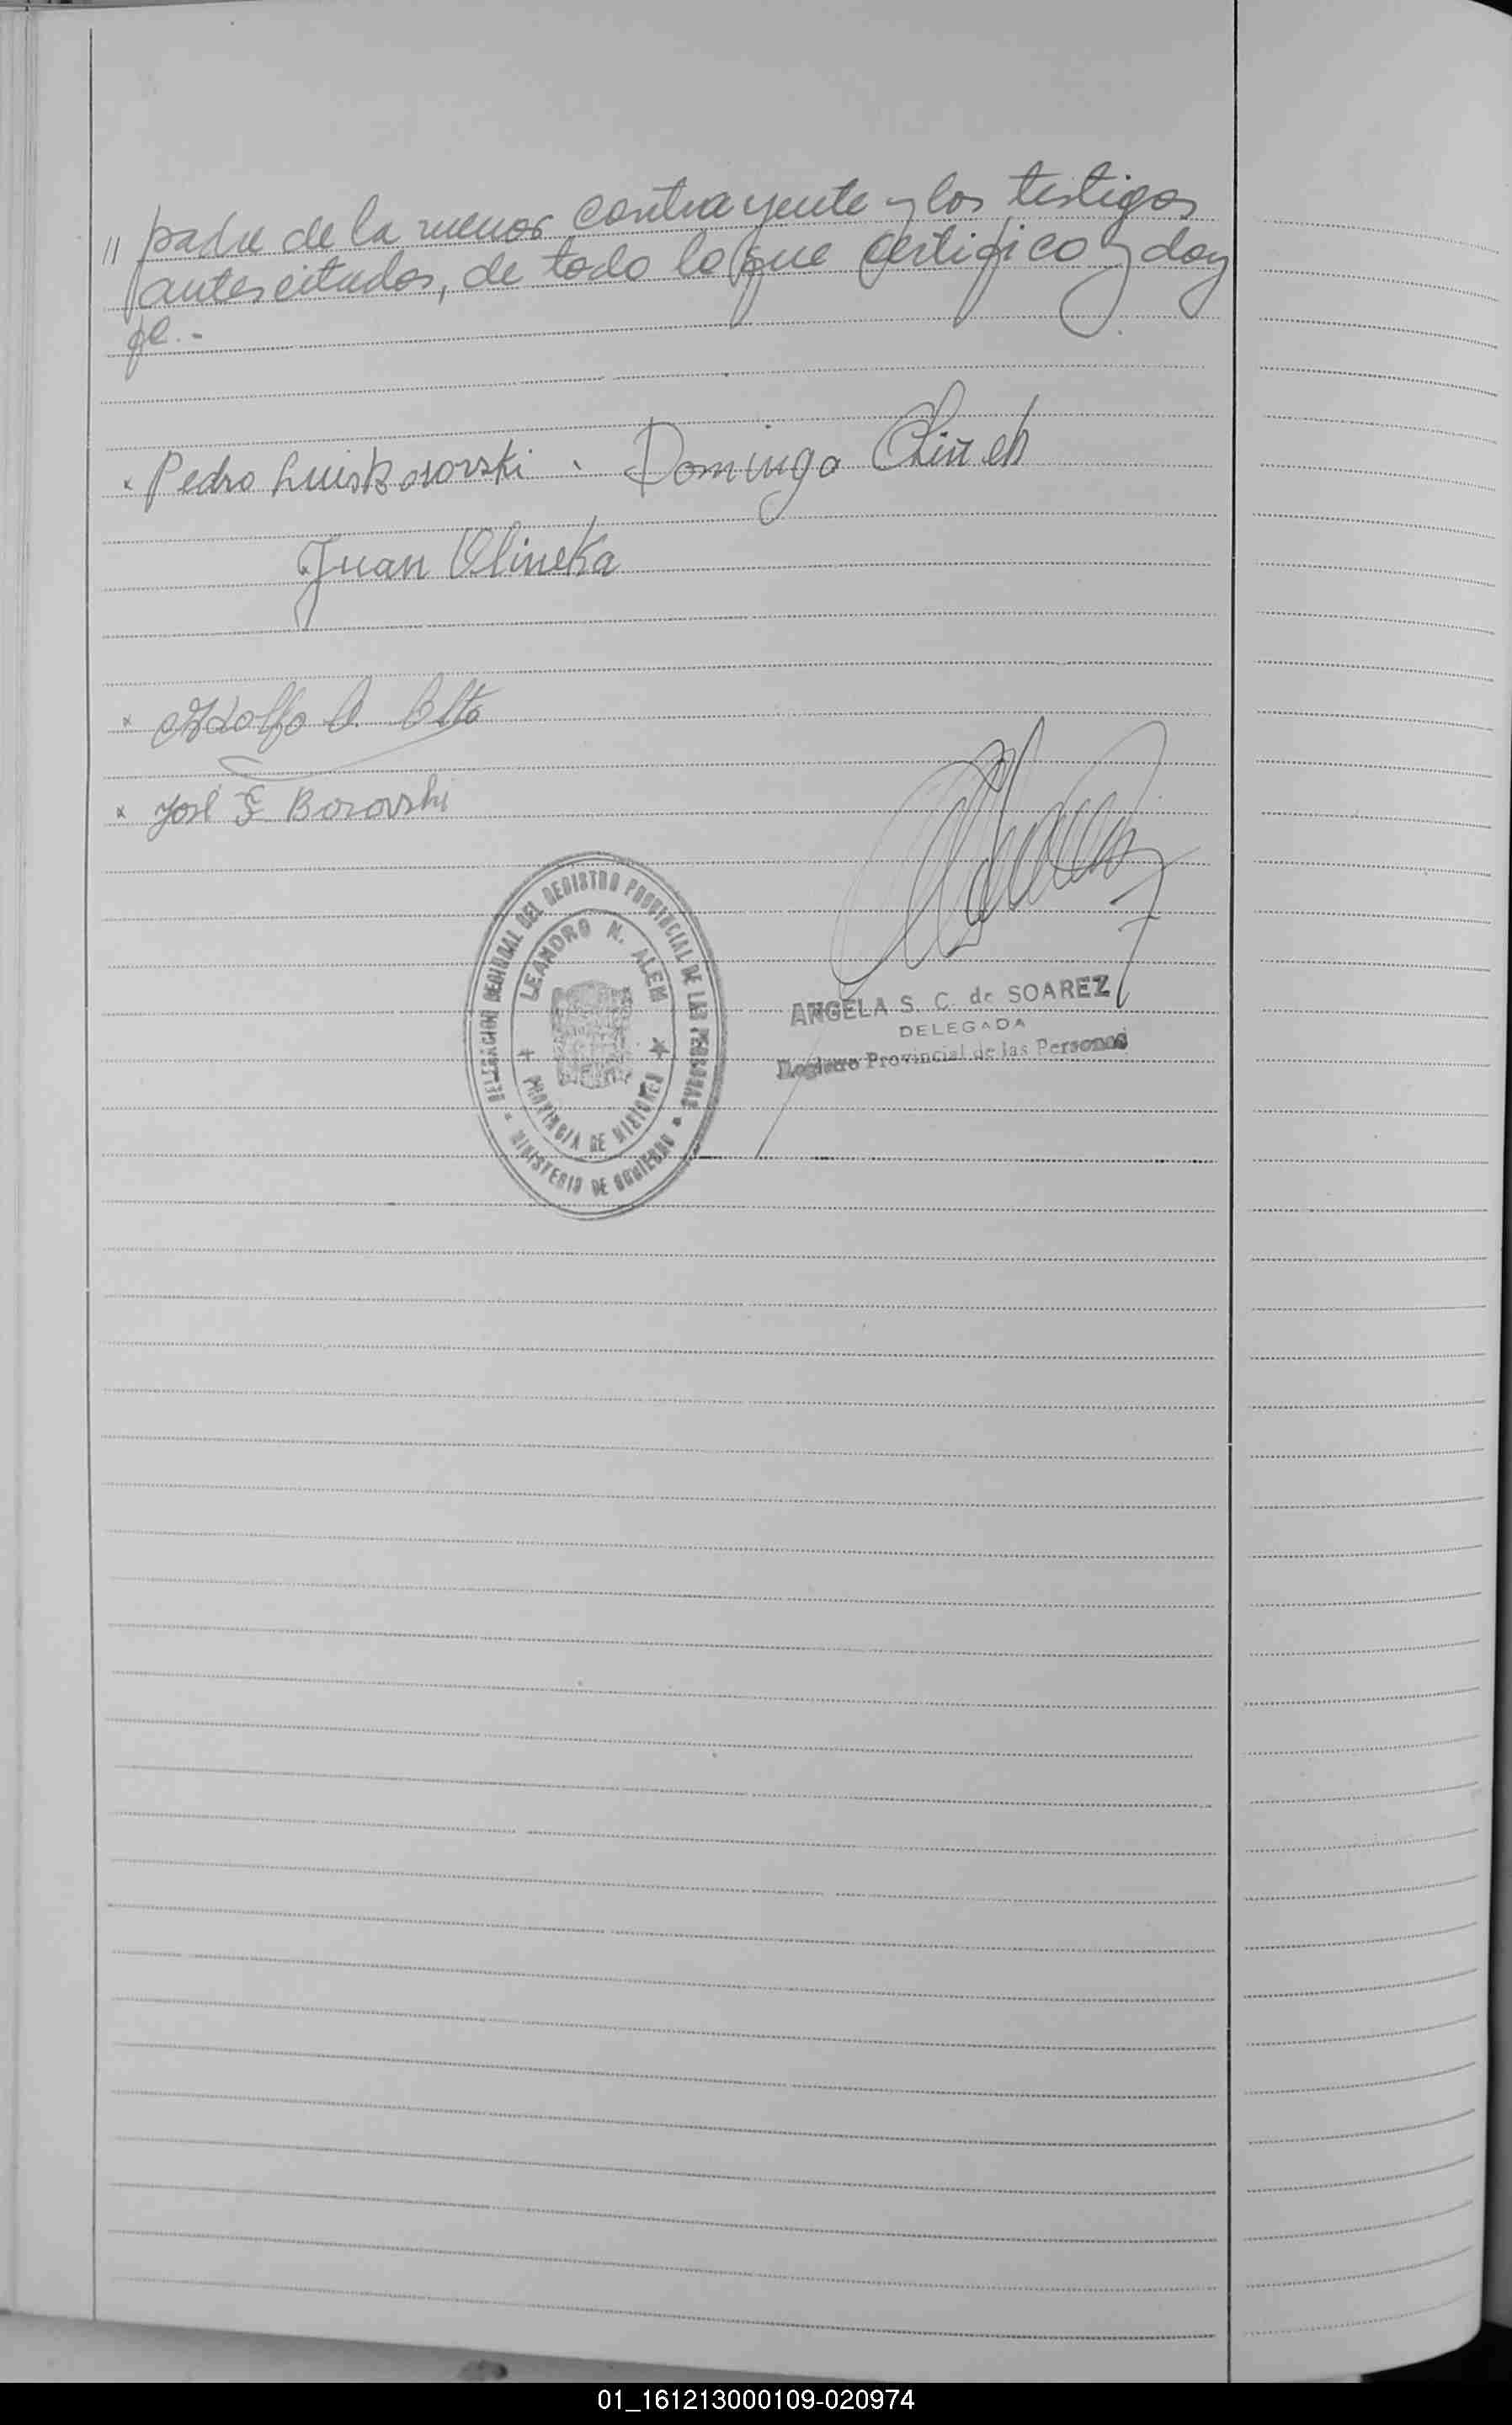 " padre de la menor contrayente y los testigos
antes citados, de todo lo que certifico y doy
fe.-
x Pedro Luis Borovski . Domingo
Juan Olineka
x Adolfo
x José F Borovski
DELEGACION REGIONAL DEL REGISTRO PROVINCIAL DE LAS PERSONAS
LEANDRO N. ALEM
PROVINCIA DE MISIONES
MINISTERIO DE GOBIERNO
ANGELA S. C. de SOAREZ
DELEGADA
Registro Provincial de las Personas
01_161213000109-020974